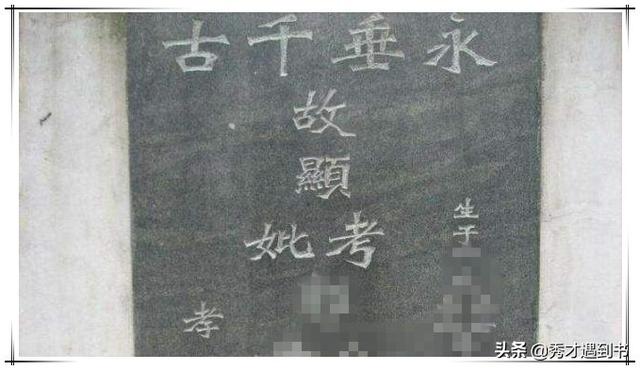 永垂千古
故顯
考妣
生于
孝
头条 @秀才遇到书